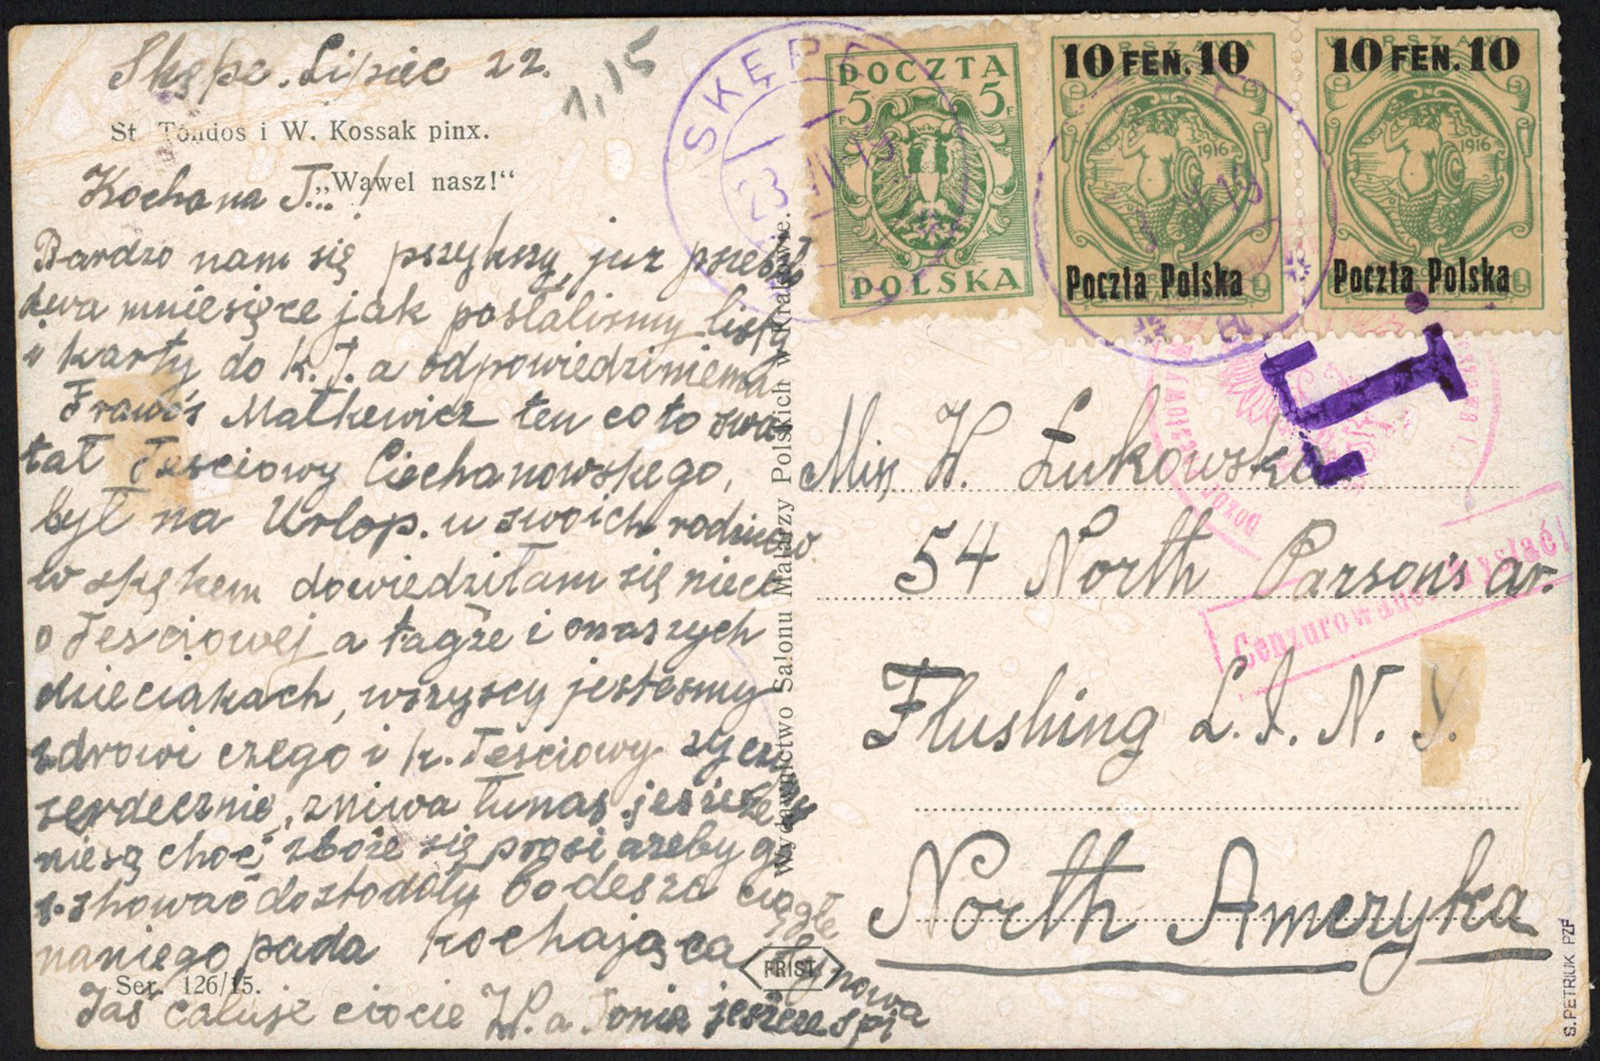 Skępe. Lipiec 22.
1,15
St. Tondos i W. Kossak pinx.
Kochana T...
„Wawel nasz!“
Bardzo nam się pszykszy, juz pszeszl
dwa mniesięce jak posłalismy listy
i karty do k. T. a odpowiedzi niema
Matkewicz ten co to swa-
tał Teściowy Ciechanowskego,
był na Urlop. u swoich rodziców
w skępem dowiedziłam się nieco
o Teściowej a tagże i onaszych
dzieciakach, wszyscy jestesmy
zdrowi czego i k. Teściowy życzę
serdecznie, zniwa tunas jeszcze w
niesą choć zboże się prosi azeby go
schować dostodoły bo deszcz ciągle
naniego pada kochająca
synowa
Jaś całuje ciocie W. a Tonia jeszcze spi
Ser. 126/15.
FRIST
Wydawnictwo Salonu Malarzy Polskich w Krakowie.
SKĘPE
23 VII 19
POCZTA
5 F 5 F
POLSKA
WARSZAWA
10 FEN. 10
1916
Poczta Polska
WARSZAWA
10 FEN. 10
1916
Poczta Polska
T.
Miss W. Łukowska
54 North Parsons av.
Flushing L. I. N. Y.
North Ameryka
Cenzurowane, wysłać!
S. PETRIUK PZF